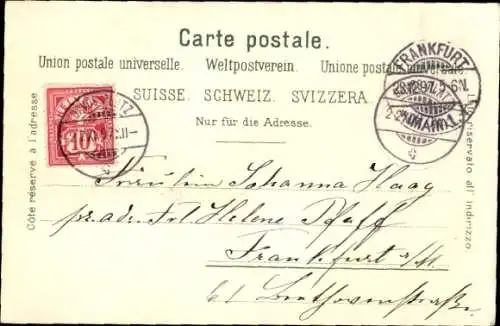 Carte postale.
Union postale universelle. Weltpostverein. Unione postale universale.
SUISSE. SCHWEIZ. SVIZZERA.
Nur für die Adresse.
Côte réservé à l'adresse
Lato riservato all' indirizzo
FRANKFURT
10
Fräulein Johanna Haag
pr. adr. Frl. Helene Pfaff
Frankfurt a/M.
Beethovenstraße